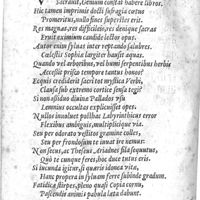 Sacrauit, Genium constat habere libros.
Hic tamen imprimis docti suffragia cœtus
Promeruit, nullo fines superstes erit.
Res magnas, res difficiles, res denique sacras
Fruit eximium candide lector opus.
Autor enim syluas inter reptando salubres.
Cælestis Sophiæ largiter hausit aquas.
Quando vel arboribus, vel humi serpentibus herbis
Accessisse prisco tempore tantus honos?
Equis crediderit sacri tot mystica Verbi,
Clausa sub externo cortice sensa tegi?
Si non assiduo diuinæ Pallados vsu
Lemnius occultas explicuisset opes.
Nullos inuoluit pollhac Labyrinthicus error
Flexibus ambiguis, multiplicique via.
Seu per odorato vestitos gramine colles,
Seu per frondosum te iuuat ire nemus:
Non secus, ac Theseus, Ariadnes fila sequutus,
Quò te cunque feres, hoc duce tutus eris.
Si iucunda igitur, si quæris idonea vita,
Hanc propera in syluam ferre subinde gradum.
Fatidicæ stirpes, pleno quasi Copia cornu,
Pascendi animi pabula læta dabunt.